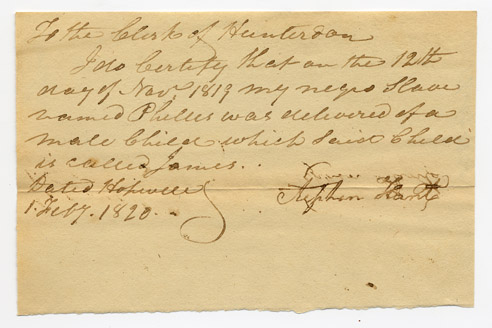 To the Clerk of Hunterdon
I do Certify that on the 12th
day of Nov. 1819 my negro Slave
named Phelles was delivered of a
male Child which Said Child
is called James.
Dated Hopwell
1 Feby. 1820.
Stephen Hart